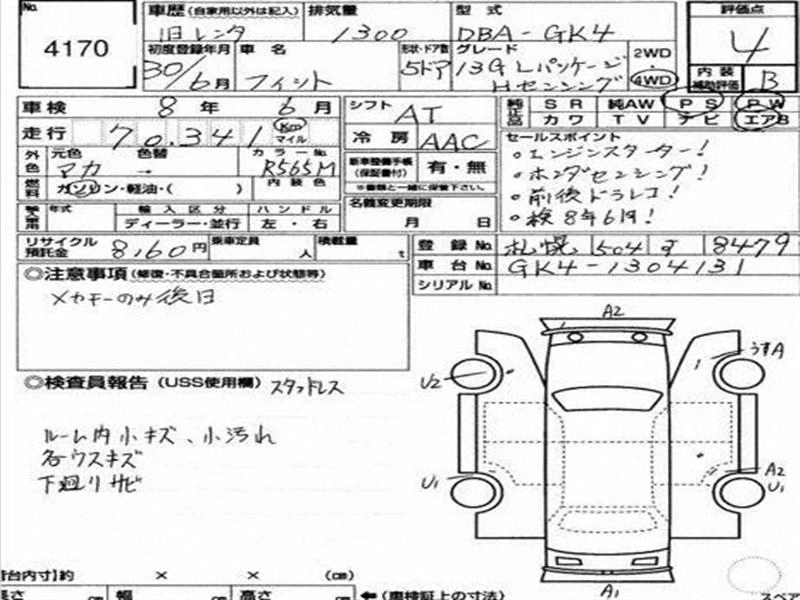 No. 4170
車歴(自家用以外は記入) 旧レンタ 排気量 1300 型式 DBA-GK4 評価点 4
初度登録年月 30/6月 車名 フィット 形状・ドア数 5ドア グレード 13G Lパッケージ Hセンシング 2WD 4WD 内装補助評価 B
車検 8年 6月 シフト AT 純正品 SR 純AW PS PW
走行 70,341 Km マイル 冷房 AAC カワ TV ナビ エアB
外色 元色 マカ 色替 → カラーNo. R565M 内装色
新車整備手帳(保証書付) 有・無
※書類と一緒に保管下さい。
セールスポイント
。エンジンスターター!
。ホンダセンシング!
。前後ドラレコ!
。検8年6月!
燃料 ガソリン・軽油・( )
名義変更期限 月 日
年式 輸入区分 ハンドル
ディーラー・並行 左・右
リサイクル預託金 8,160円 乗車定員 人 積載量 t
登録No. 札幌 504 す 8479
車台No. GK4-1304131
シリアルNo.
◎注意事項(修復・不具合箇所および状態等)
メカキーのみ後日
◎検査員報告(USS使用欄) スタッドレス
ルーム内小キズ、小汚れ
各ウスキズ
下廻りサビ
A2
うすA
U2
U1
A2
U1
A1
荷台内寸]約 × × (cm)
長さ cm 幅 cm 高さ cm ←(車検証上の寸法)
スペア